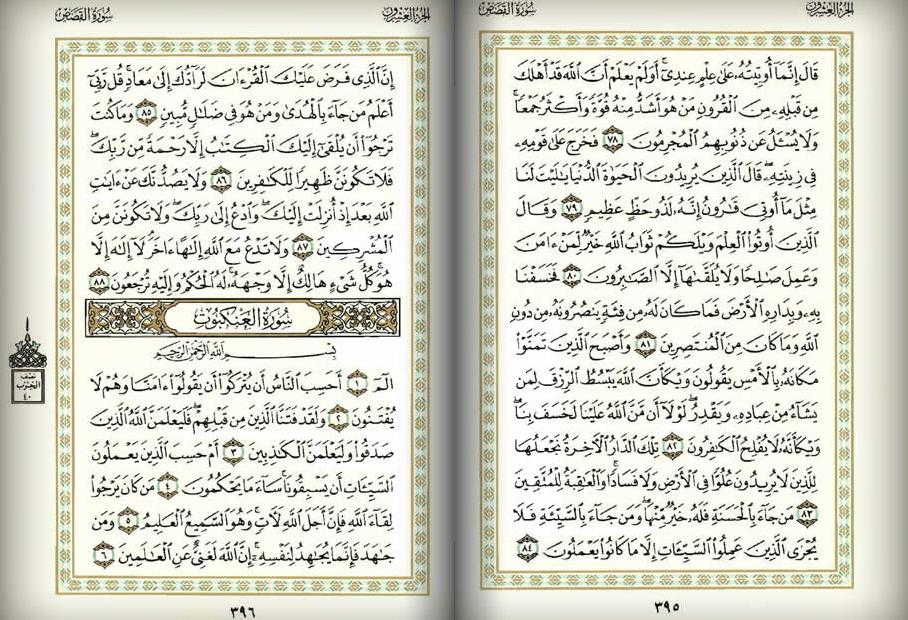 الجزء العشرون
سورة القصص
قَالَ إِنَّمَآ أُوتِيتُهُۥ عَلَىٰ عِلْمٍ عِندِىٓ ۚ أَوَلَمْ يَعْلَمْ أَنَّ ٱللَّهَ قَدْ أَهْلَكَ
مِن قَبْلِهِۦ مِنَ ٱلْقُرُونِ مَنْ هُوَ أَشَدُّ مِنْهُ قُوَّةً وَأَكْثَرُ جَمْعًا ۚ
وَلَا يُسْـَٔلُ عَن ذُنُوبِهِمُ ٱلْمُجْرِمُونَ ٧٨ فَخَرَجَ عَلَىٰ قَوْمِهِۦ
فِى زِينَتِهِۦ ۖ قَالَ ٱلَّذِينَ يُرِيدُونَ ٱلْحَيَوٰةَ ٱلدُّنْيَا يَـٰلَيْتَ لَنَا
مِثْلَ مَآ أُوتِىَ قَـٰرُونُ إِنَّهُۥ لَذُو حَظٍّ عَظِيمٍ ٧٩ وَقَالَ
ٱلَّذِينَ أُوتُوا۟ ٱلْعِلْمَ وَيْلَكُمْ ثَوَابُ ٱللَّهِ خَيْرٌ لِّمَنْ ءَامَنَ
وَعَمِلَ صَـٰلِحًا وَلَا يُلَقَّىٰهَآ إِلَّا ٱلصَّـٰبِرُونَ ٨٠ فَخَسَفْنَا
بِهِۦ وَبِدَارِهِ ٱلْأَرْضَ فَمَا كَانَ لَهُۥ مِن فِئَةٍ يَنصُرُونَهُۥ مِن دُونِ
ٱللَّهِ وَمَا كَانَ مِنَ ٱلْمُنتَصِرِينَ ٨١ وَأَصْبَحَ ٱلَّذِينَ تَمَنَّوْا۟
مَكَانَهُۥ بِٱلْأَمْسِ يَقُولُونَ وَيْكَأَنَّ ٱللَّهَ يَبْسُطُ ٱلرِّزْقَ لِمَن
يَشَآءُ مِنْ عِبَادِهِۦ وَيَقْدِرُ ۖ لَوْلَآ أَن مَّنَّ ٱللَّهُ عَلَيْنَا لَخَسَفَ بِنَا ۖ
وَيْكَأَنَّهُۥ لَا يُفْلِحُ ٱلْكَـٰفِرُونَ ٨٢ تِلْكَ ٱلدَّارُ ٱلْـَٔاخِرَةُ نَجْعَلُهَا
لِلَّذِينَ لَا يُرِيدُونَ عُلُوًّا فِى ٱلْأَرْضِ وَلَا فَسَادًا ۚ وَٱلْعَـٰقِبَةُ لِلْمُتَّقِينَ
٨٣ مَن جَآءَ بِٱلْحَسَنَةِ فَلَهُۥ خَيْرٌ مِّنْهَا ۖ وَمَن جَآءَ بِٱلسَّيِّئَةِ فَلَا
يُجْزَى ٱلَّذِينَ عَمِلُوا۟ ٱلسَّيِّـَٔاتِ إِلَّا مَا كَانُوا۟ يَعْمَلُونَ ٨٤
٣٩٥
الجزء العشرون
سورة القصص
إِنَّ ٱلَّذِى فَرَضَ عَلَيْكَ ٱلْقُرْءَانَ لَرَآدُّكَ إِلَىٰ مَعَادٍ ۚ قُل رَّبِّىٓ
أَعْلَمُ مَن جَآءَ بِٱلْهُدَىٰ وَمَنْ هُوَ فِى ضَلَـٰلٍ مُّبِينٍ ٨٥ وَمَا كُنتَ
تَرْجُوٓا۟ أَن يُلْقَىٰٓ إِلَيْكَ ٱلْكِتَـٰبُ إِلَّا رَحْمَةً مِّن رَّبِّكَ ۖ
فَلَا تَكُونَنَّ ظَهِيرًا لِّلْكَـٰفِرِينَ ٨٦ وَلَا يَصُدُّنَّكَ عَنْ ءَايَـٰتِ
ٱللَّهِ بَعْدَ إِذْ أُنزِلَتْ إِلَيْكَ ۖ وَٱدْعُ إِلَىٰ رَبِّكَ ۖ وَلَا تَكُونَنَّ مِنَ
ٱلْمُشْرِكِينَ ٨٧ وَلَا تَدْعُ مَعَ ٱللَّهِ إِلَـٰهًا ءَاخَرَ ۘ لَآ إِلَـٰهَ إِلَّا
هُوَ ۚ كُلُّ شَىْءٍ هَالِكٌ إِلَّا وَجْهَهُۥ ۚ لَهُ ٱلْحُكْمُ وَإِلَيْهِ تُرْجَعُونَ ٨٨
سورة العنكبوت
بِسْمِ ٱللَّهِ ٱلرَّحْمَـٰنِ ٱلرَّحِيمِ
الٓمٓ ١ أَحَسِبَ ٱلنَّاسُ أَن يُتْرَكُوٓا۟ أَن يَقُولُوٓا۟ ءَامَنَّا وَهُمْ لَا
يُفْتَنُونَ ٢ وَلَقَدْ فَتَنَّا ٱلَّذِينَ مِن قَبْلِهِمْ ۖ فَلَيَعْلَمَنَّ ٱللَّهُ ٱلَّذِينَ
صَدَقُوا۟ وَلَيَعْلَمَنَّ ٱلْكَـٰذِبِينَ ٣ أَمْ حَسِبَ ٱلَّذِينَ يَعْمَلُونَ
ٱلسَّيِّـَٔاتِ أَن يَسْبِقُونَا ۚ سَآءَ مَا يَحْكُمُونَ ٤ مَن كَانَ يَرْجُوا۟
لِقَآءَ ٱللَّهِ فَإِنَّ أَجَلَ ٱللَّهِ لَـَٔاتٍ ۚ وَهُوَ ٱلسَّمِيعُ ٱلْعَلِيمُ ٥ وَمَن
جَـٰهَدَ فَإِنَّمَا يُجَـٰهِدُ لِنَفْسِهِۦٓ ۚ إِنَّ ٱللَّهَ لَغَنِىٌّ عَنِ ٱلْعَـٰلَمِينَ ٦
نصف
الحزب
٤٠
٣٩٦